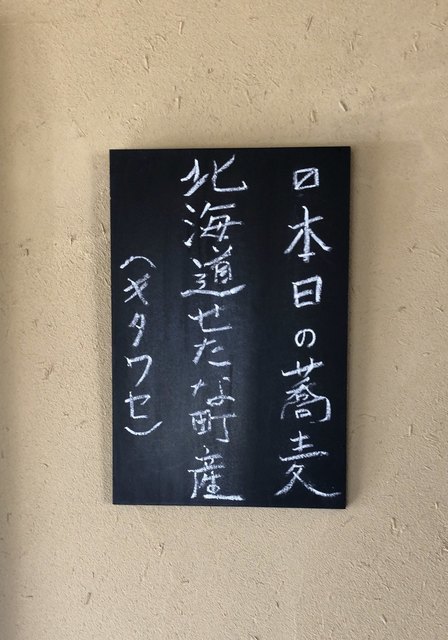 〼本日の蕎麦
北海道せたな町産
（キタワセ）